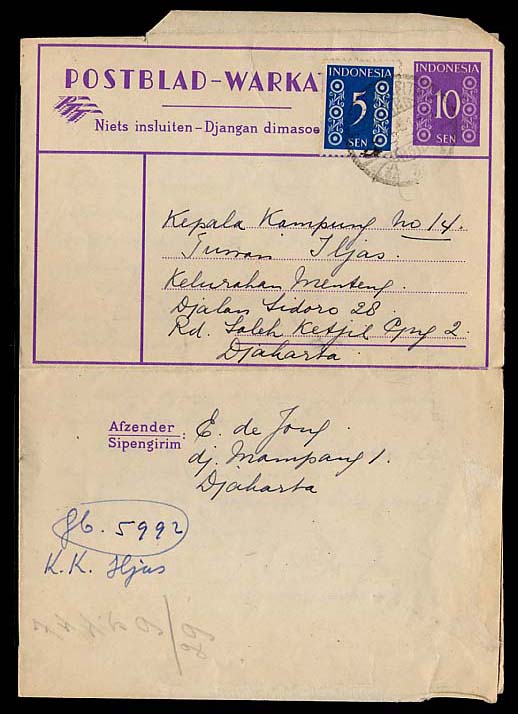 POSTBLAD-WARKA
Niets insluiten-Djangan dimasoe
INDONESIA
5
SEN
INDONESIA
10
SEN
Kepala Kampung No 14.
Tuwan Iljas.
Kelurahan Menteng.
Djalan Sidoro 28.
Rd. Saleh Ketjil Gng 2.
Djakarta.
Afzender
Sipengirim:
E. de Jong.
dj. Mampang 1.
Djakarta
Gb. 5992
K.K. Iljas